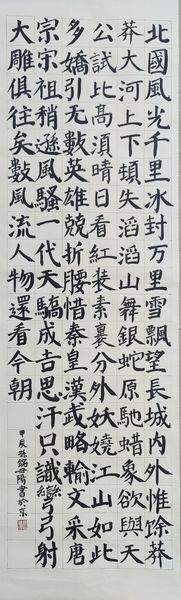 北國風光千里冰封万里雪飄望長城内外惟餘莽
莽大河上下頓失滔滔山舞銀蛇原馳蜡象欲與天
公試比高須晴日看紅装素裹分外妖嬈江山如此
多嬌引无數英雄競折腰惜秦皇漢武略輸文采唐
宗宋祖稍遜風騷一代天驕成吉思汗只識彎弓射
大雕俱往矣數風流人物還看今朝
甲辰孫書於京